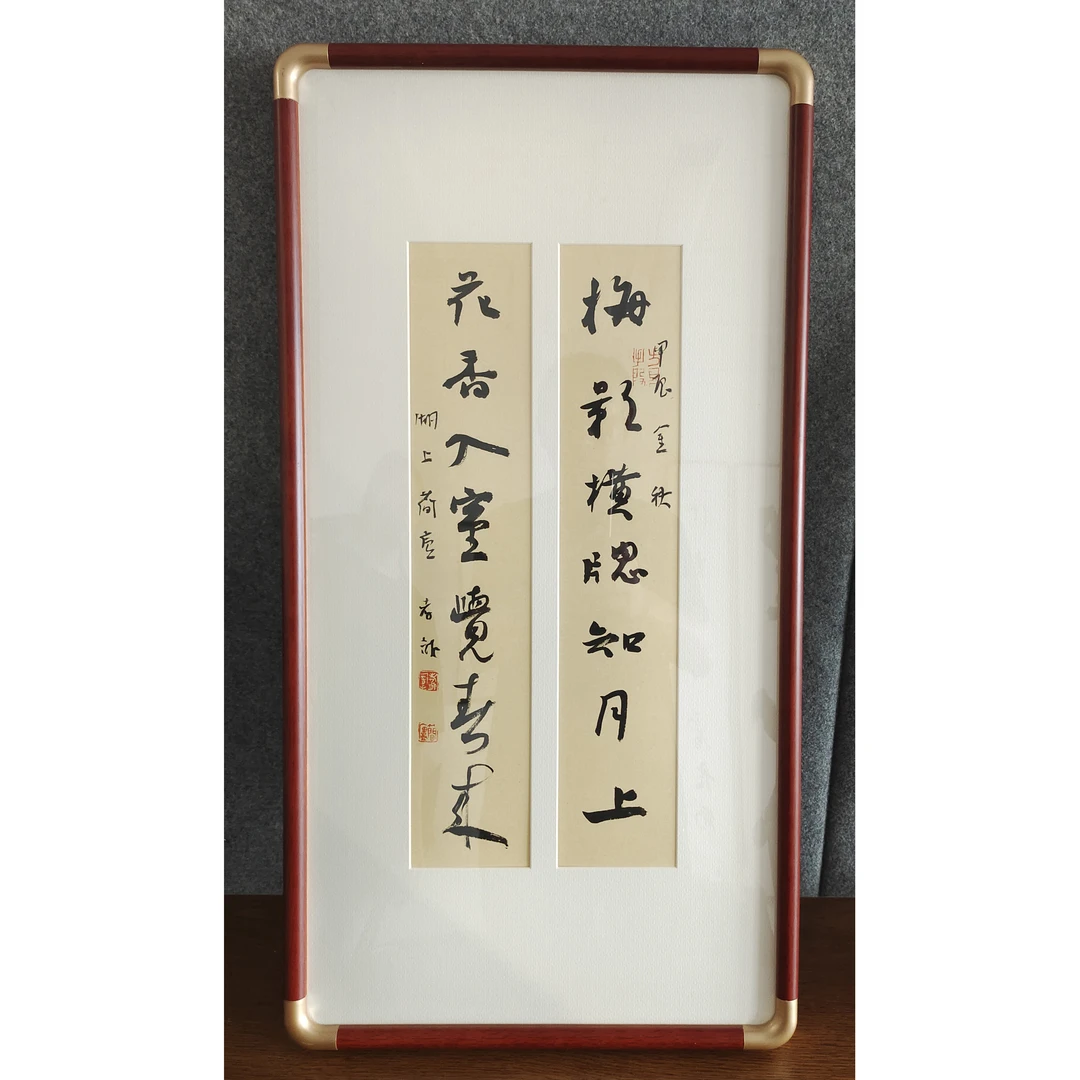 梅影横牕知月上
甲辰金秋
花香入室覺春来
湖上荷